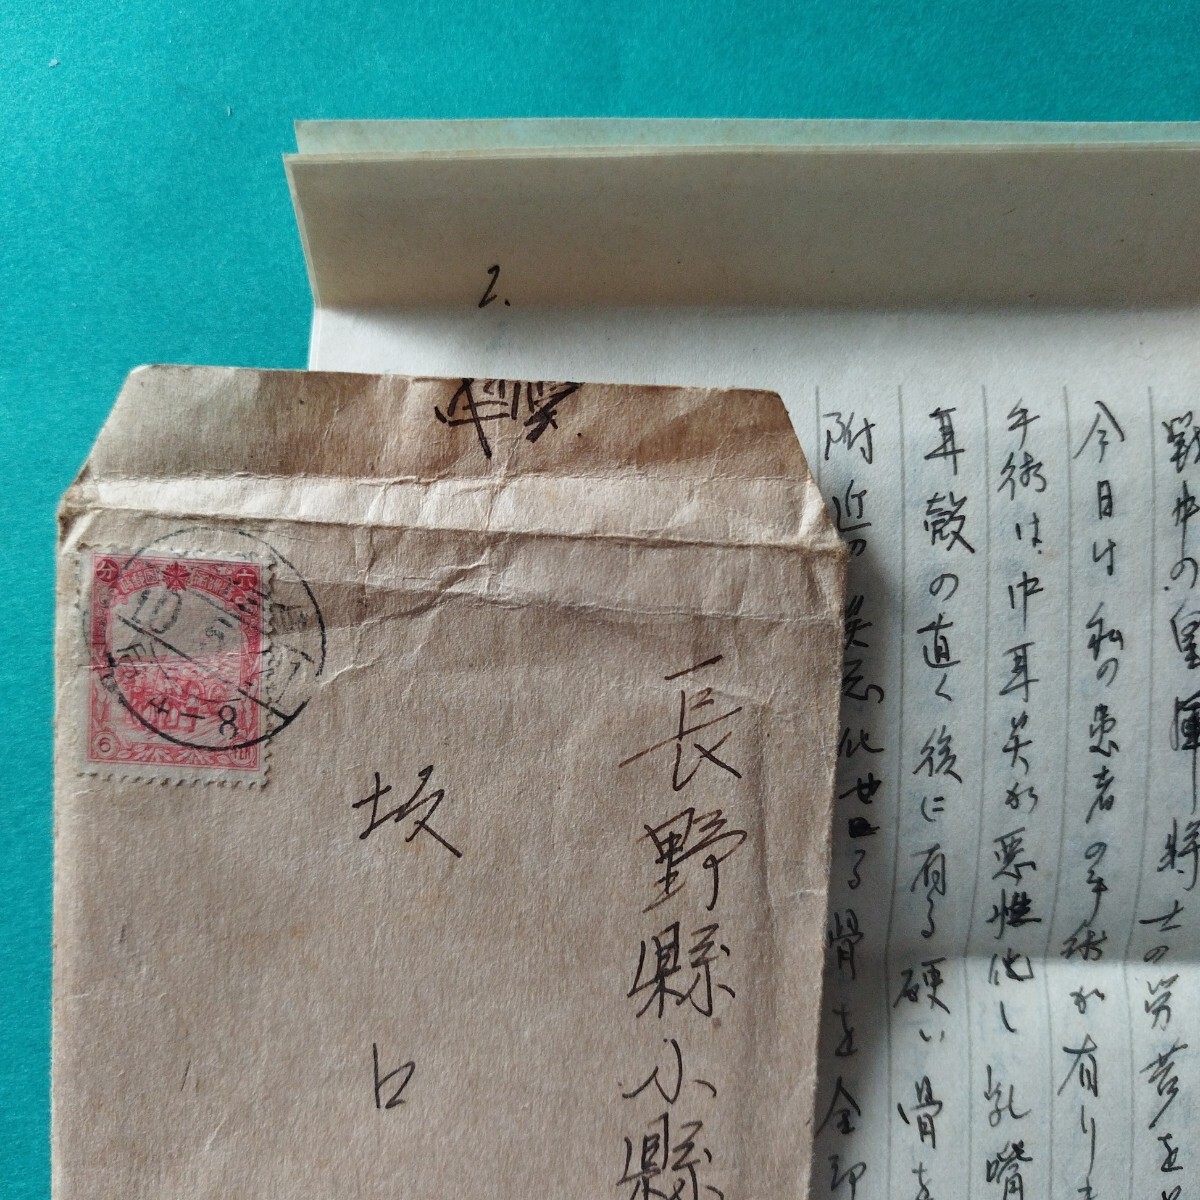 2.
戦中の皇軍将士の労苦を
今日は私の患者の手術が有りま
手術は、中耳炎が悪性化し乳嘴
耳殻の直ぐ後に有る硬い骨を
附近の炎悪化せる骨を全部
長野縣小縣
坂口
六
分
10
8
6